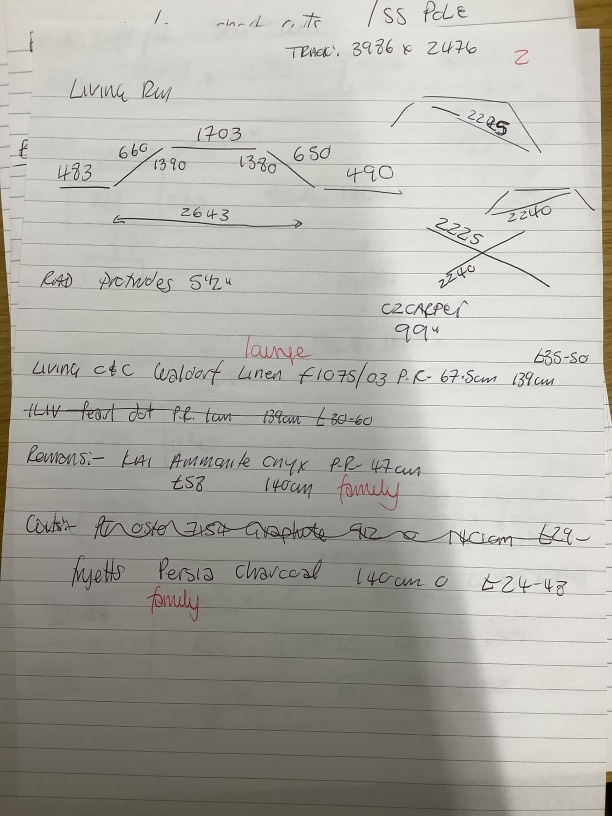 /SS POLE
TRACK:. 3986 x 2476
2
Living Rm
1703
660 1390 1380 650
483 490
2643
2225
2240
2225
2240
RAD protrudes 5½"
CZCARPET
99"
lounge
£35-50
Living C&C Waldorf Linen F1075/03 P.R- 67.5cm 139cm
ILIV Pearl dot P.R. 139cm £30-60
Romans:- KAI Ammonite Onyx P.R- 47cm
£58 140cm family
Fryetts Persia Charcoal 140cm O £24-48
family